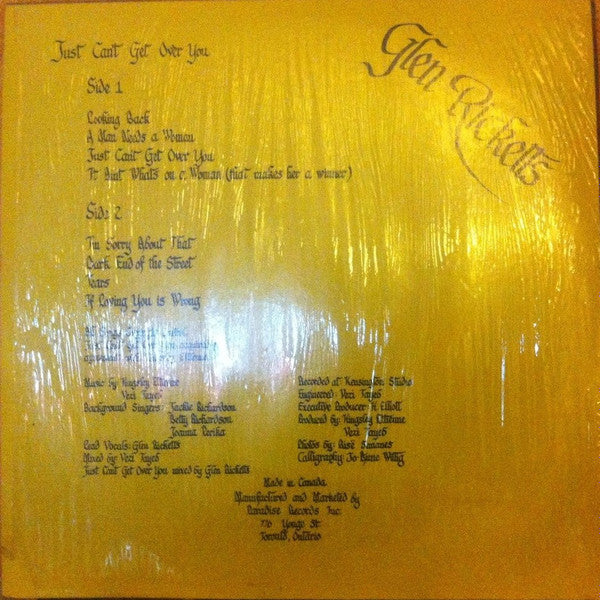 Just Can't Get Over You
Glen Ricketts
Side 1
Looking Back
A Man Needs a Woman
Just Can't Get Over You
It Aint What's on a Woman (that makes her a winner)
Side 2
I'm Sorry About That
Dark End of the Street
Tears
If Loving You is Wrong
All Songs
Just Can't Get Over You
Music by Kingsley Ettienne
Vezi Tayeb
Background Singers: Jackie Richardson
Betty Richardson
Joanna
Lead Vocals: Glen Ricketts
Mixed by: Vezi Tayeb
Just Cant Get Over You mixed by Glen Ricketts
Recorded at Kensington Studio
Engineered: Vezi Tayeb
Executive Producer: H. Elliott
Produced by: Kingsley Ettienne
Vezi Tayeb
Photos by: Simanes
Calligraphy: Jo Irene Willig
Made in Canada
Manufactured and Marketed by
Paradise Records Inc.
776 Yonge St.
Toronto, Ontario